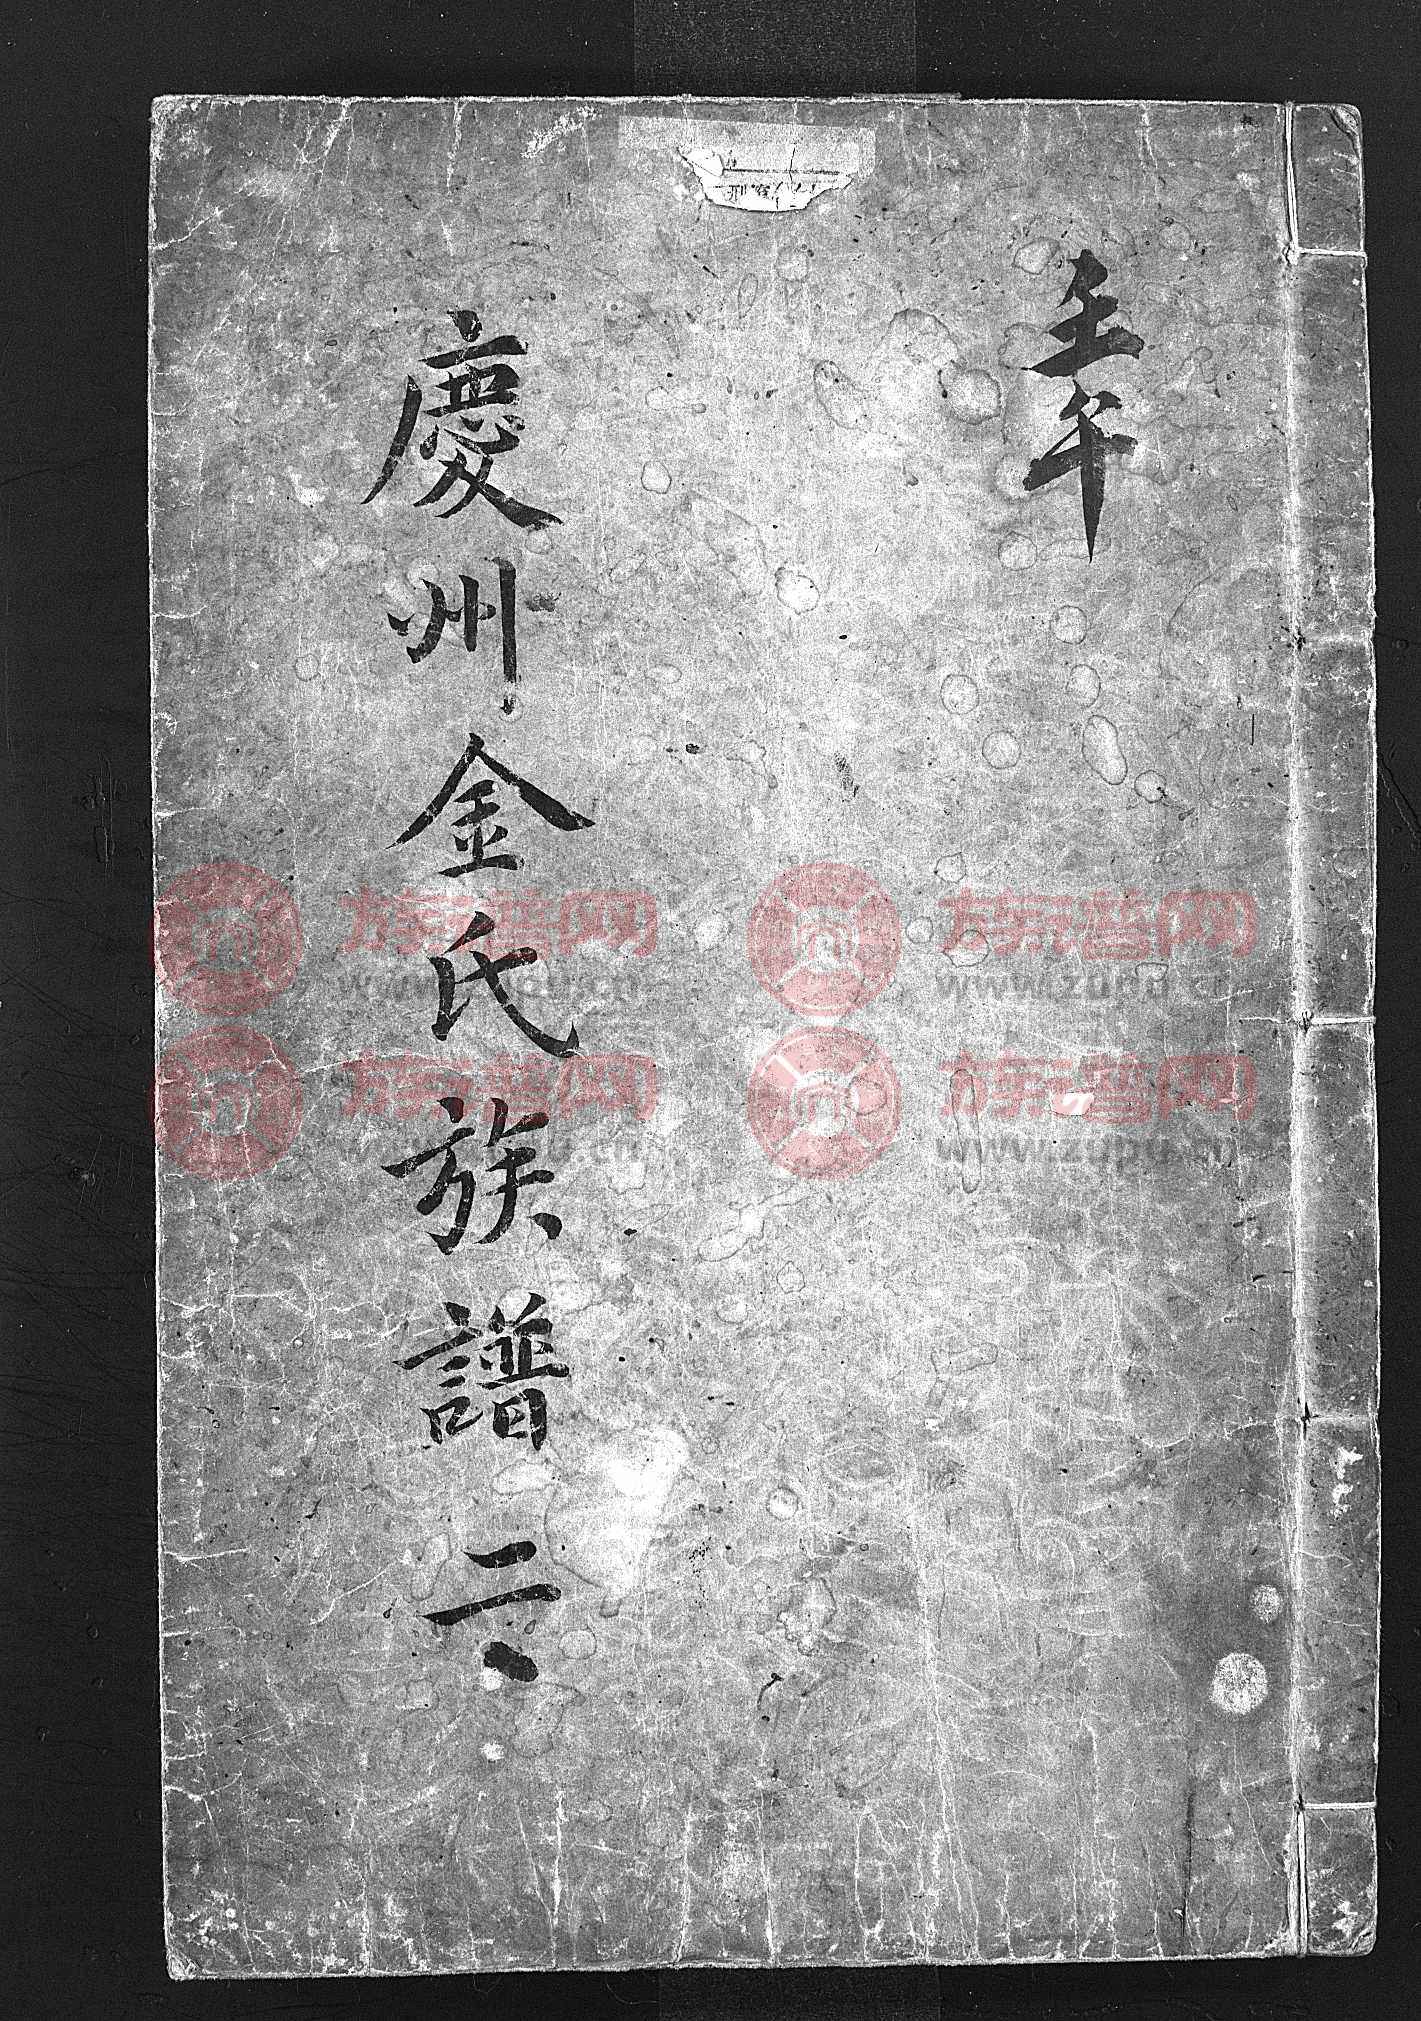 壬午
慶州金氏族譜二
族谱网 族谱网
www.zupu.cn www.zupu.cn
族谱网 族谱网
www.zupu.cn www.zupu.cn